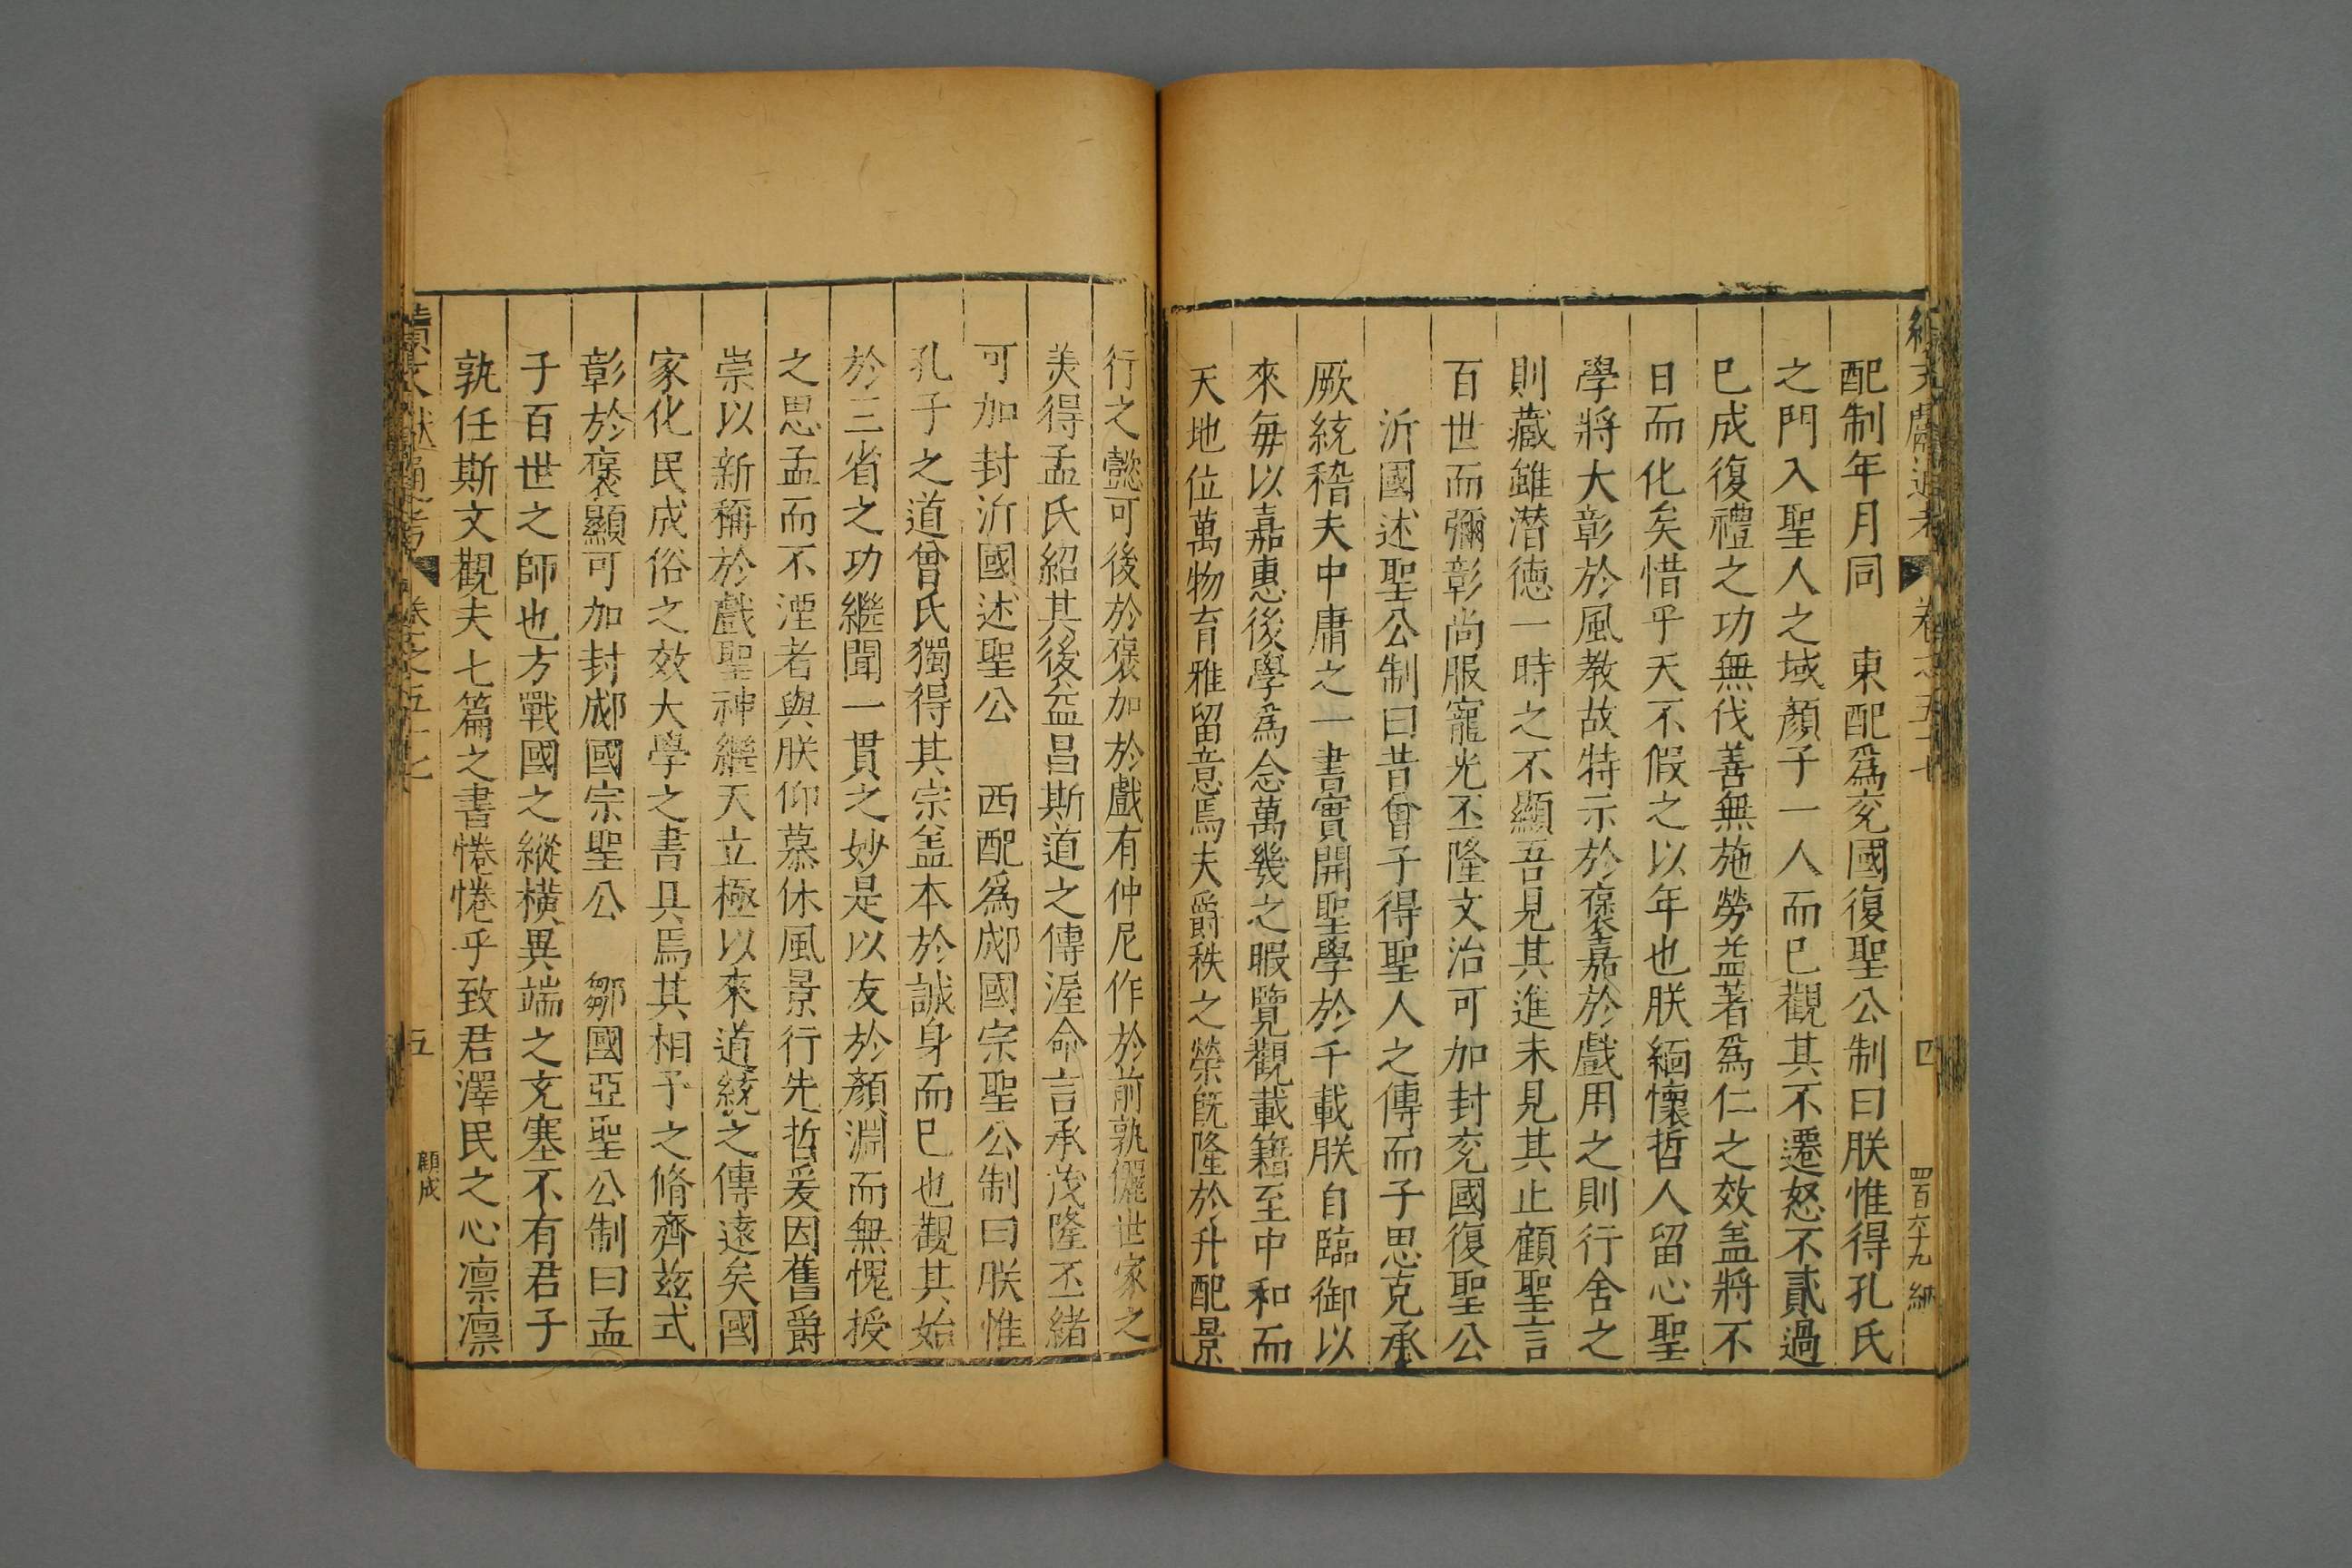 續文獻通考 卷之五十七 四 四百六十九 納
配制年月同 東配爲兖國復聖公制曰朕惟得孔氏
之門入聖人之域顏子一人而已觀其不遷怒不貳過
已成復禮之功無伐善無施勞益著爲仁之效盖將不
日而化矣惜乎天不假之以年也朕緬懷哲人留心聖
學將大彰於風教故特示於褒嘉於戲用之則行舍之
則藏雖潛德一時之不顯吾見其進未見其止顧聖言
百世而彌彰尚服寵光丕隆文治可加封兖國復聖公
沂國述聖公制曰昔曾子得聖人之傳而子思克承
厥統稽夫中庸之一書實開聖學於千載朕自臨御以
來每以嘉惠後學爲念萬幾之暇覽觀載籍至中和而
天地位萬物育雅留意焉夫爵秩之榮旣隆於升配景
行之懿可後於褒加於戲有仲尼作於前孰儷世家之
美得孟氏紹其後益昌斯道之傳渥命言承茂隆丕緒
可加封沂國述聖公 西配爲郕國宗聖公制曰朕惟
孔子之道曾氏獨得其宗盖本於誠身而已也觀其始
於三省之功繼聞一貫之妙是以友於顏淵而無愧授
之思孟而不湮者與朕仰慕休風景行先哲爰因舊爵
崇以新稱於戲聖神繼天立極以來道統之傳遠矣國
家化民成俗之效大學之書具焉其相予之脩齊茲式
彰於褒顯可加封郕國宗聖公 鄒國亞聖公制曰孟
子百世之師也方戰國之縱橫異端之充塞不有君子
孰任斯文觀夫七篇之書惓惓乎致君澤民之心凛凛
續文獻通考 卷之五十七 五 顧成